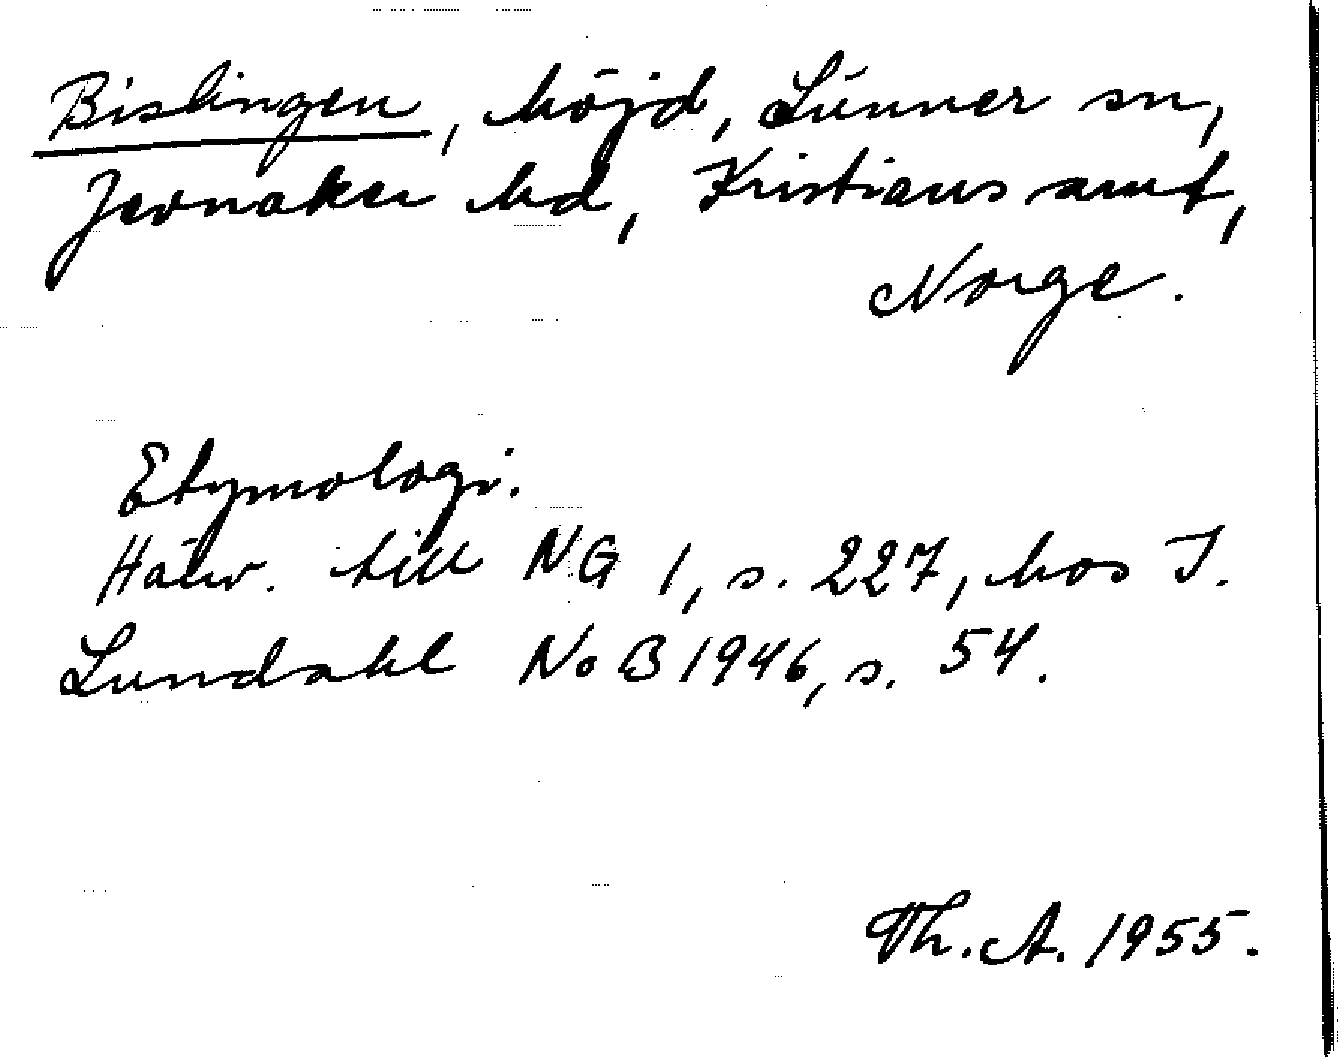 Bislingen, höjd, Lunner sn,
Jevnaker hd, Kristians amt,
Norge.
Etymologi.
Hänv. till NG 1, s. 227, hos I.
Lundahl NoB 1946, s. 54.
Th. A. 1955.